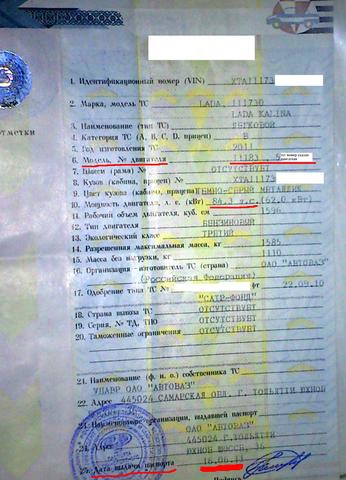 1. Идентификационный номер (VIN) XTA11173
2. Марка, модель ТС LADA, 111730
LADA KALINA
3. Наименование (тип ТС) ЛЕГКОВОЙ
отметки
4. Категория ТС (A, B, C, D, прицеп) B
5. Год изготовления ТС 2011
6. Модель, № двигателя 11183, 5
7. Шасси (рама) № ОТСУТСТВУЕТ
8. Кузов (кабина, прицеп) № XTA11173
9. Цвет кузова (кабины, прицепа) ТЕМНО-СЕРЫЙ МЕТАЛЛИК
10. Мощность двигателя, л. с. (кВт) 84,3 л.с.(62,0 кВт)
11. Рабочий объем двигателя, куб. см 1596
12. Тип двигателя БЕНЗИНОВЫЙ
13. Экологический класс ТРЕТИЙ
14. Разрешенная максимальная масса, кг 1585
15. Масса без нагрузки, кг 1110
16. Организация - изготовитель ТС (страна) ОАО "АВТОВАЗ"
(Российская Федерация)
17. Одобрение типа ТС № от 22.09.10
"САТР-ФОНД"
18. Страна вывоза ТС ОТСУТСТВУЕТ
19. Серия, № ТД, ТПО ОТСУТСТВУЕТ
20. Таможенные ограничения ОТСУТСТВУЕТ
21. Наименование (ф. и. о.) собственника ТС
ОАО "АВТОВАЗ"
22. Адрес 445024 САМАРСКАЯ ОБЛ. Г. ТОЛЬЯТТИ
23. Наименование организации, выдавшей паспорт
ОАО "АВТОВАЗ"
24. Адрес 445024 Г.ТОЛЬЯТТИ
36
25. Дата выдачи паспорта
Подпись